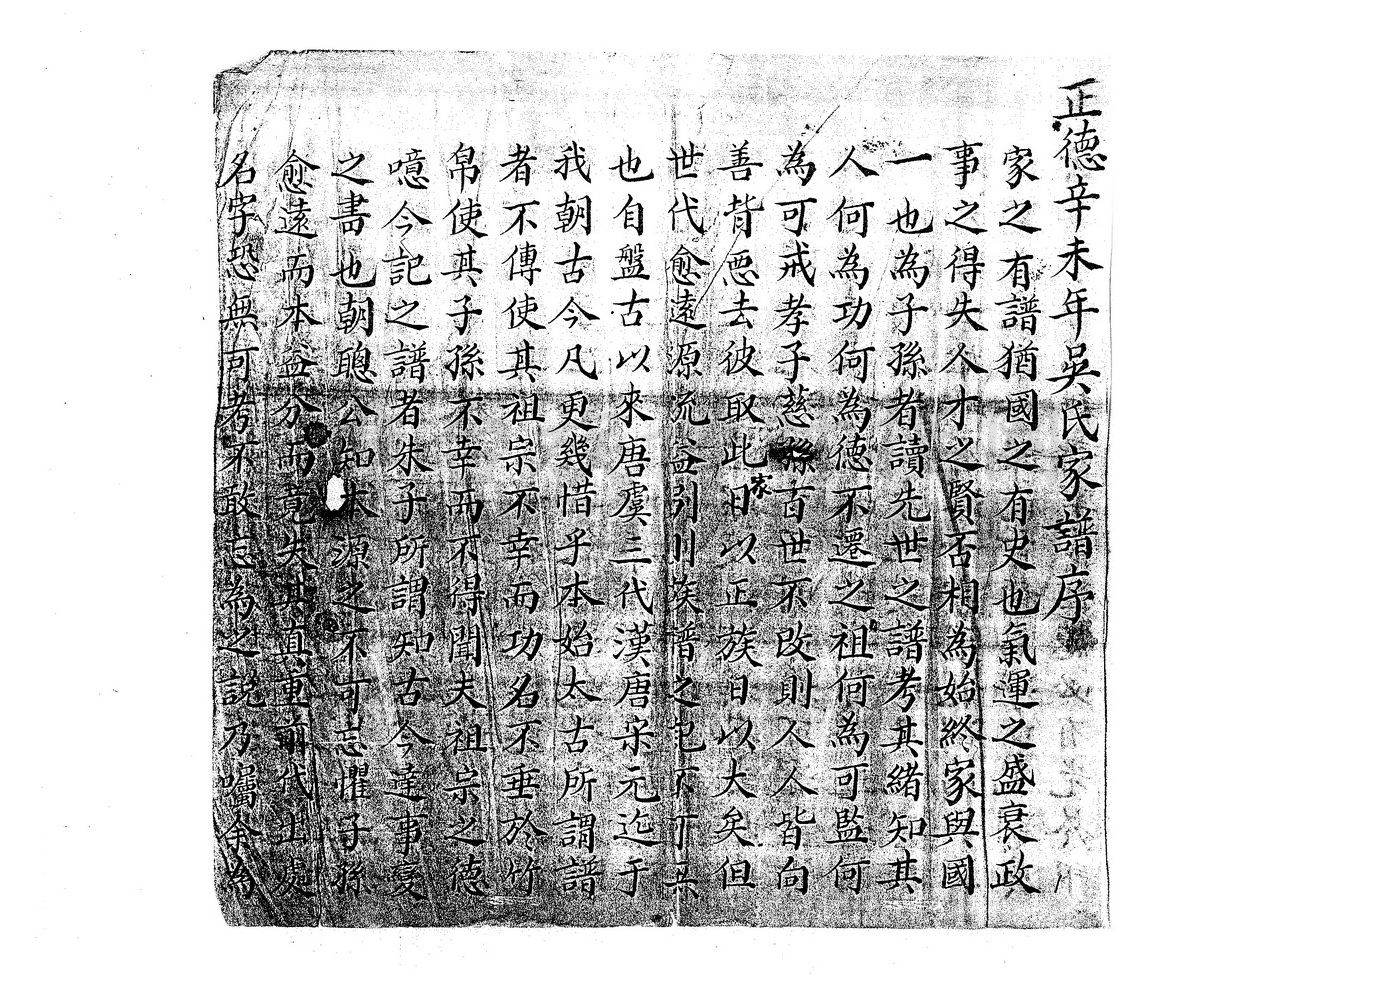 正德辛未年吳氏家譜序
家之有譜猶國之有史也氣運之盛衰政
事之得失人才之賢否相為始終家與國
一也為子孫者讀先世之譜考其緒知其
人何為功何為德不遷之祖何為可監何
為可戒孝子慈孫百世不改則人人皆向
善背惡去彼取此家日以正族日以大矣但
世代愈遠源流益引則族譜之不可無
也自盤古以來唐虞三代漢唐宋元迄于
我朝古今凡更幾惜乎本始太古所謂譜
者不傳使其祖宗不幸而功名不垂於竹
帛使其子孫不幸而不得聞夫祖宗之德
噫今記之譜者朱子所謂知古今達事變
之書也朝聰公知本源之不可忘懼子孫
愈遠而本益分而竟失其真重前代出處
名字恐無可考不敢忘為之說乃囑余為